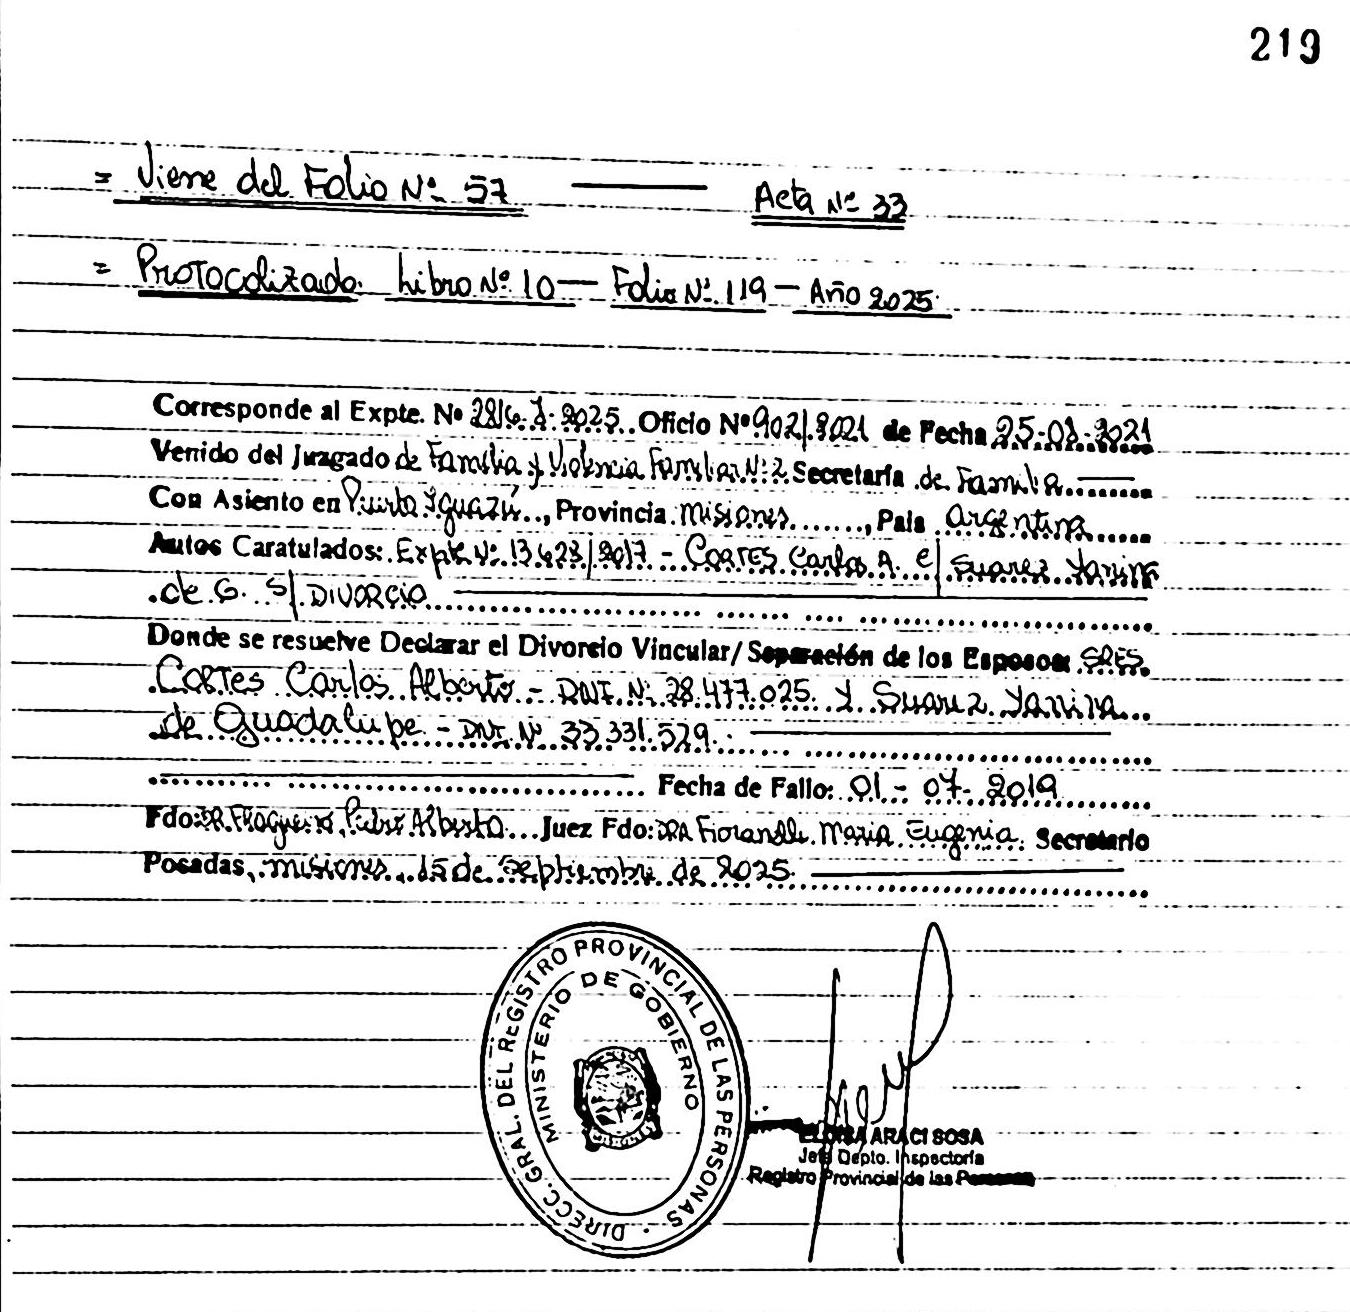 219
= Viene del Folio Nº 57 Acta Nº 33
= Protocolizado Libro Nº 10 — Folio Nº 119 — Año 2025
Corresponde al Expte. Nº 2025. Oficio Nº 902/2021 de Fecha 25-08-2021
Venido del Juzgado de Familia y Violencia Familiar Nº 2 Secretaría de Familia
Con Asiento en Puerto Iguazú, Provincia Misiones, Pais Argentina
Autos Caratulados: Expte Nº 13623/2017 - CORTES Carlos A. c/ Suarez Yanina
de G. S/ DIVORCIO
Donde se resuelve Declarar el Divorcio Vincular/Separación de los Esposos SRES.
Cortes Carlos Alberto - DNI Nº 28.477.025 y Suarez Yanina
de Guadalupe - DNI Nº 33.331.529.
Fecha de Fallo: 01 - 07 - 2019
Fdo: DR. Pedro Alberto Juez Fdo: DRA Maria Eugenia. Secretario
Posadas, Misiones, 15 de Septiembre de 2025.
DIRECC. GRAL. DEL REGISTRO PROVINCIAL DE LAS PERSONAS
MINISTERIO DE GOBIERNO
ELOISA ARACI SOSA
Jefe Depto. Inspectoría
Registro Provincial de las Personas